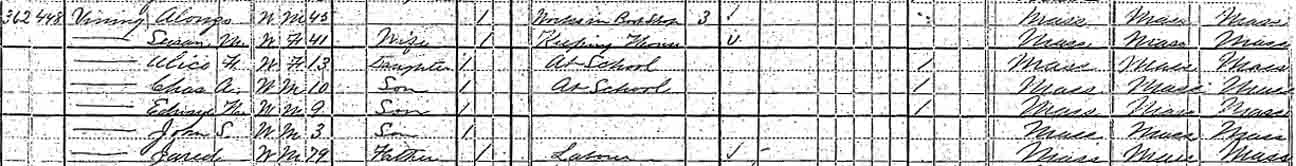 362 448 Vining Alonzo W M 45 1 Works in Boot Shop 3 ✓ Mass Mass Mass
—— Susan M. W F 41 Wife 1 Keeping House Mass Mass Mass
—— Alice F. W F 13 Daughter 1 At School 1 Mass Mass Mass
—— Chas A. W M 10 Son 1 At School 1 Mass Mass Mass
—— W M 9 Son 1 1 Mass Mass Mass
—— John S. W M 3 Son 1 Mass Mass Mass
—— Jared W M 79 Father 1 Labour ✓ Mass Mass Mass